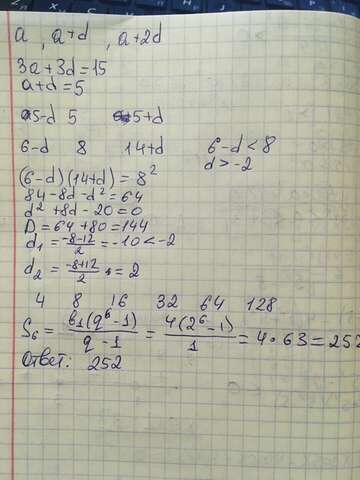 a , a+d , a+2d
3a+3d=15
a+d=5
5-d 5 5+d
6-d 8 14+d 6-d<8
d>-2
(6-d)(14+d)=8²
84-8d-d²=64
d²+8d-20=0
D=64+80=144
d₁=(-8-12)/2=-10<-2
d₂=(-8+12)/2=2
4 8 16 32 64 128
S₆=b₁(q⁶-1)/(q-1)=4(2⁶-1)/1=4·63=252
Ответ: 252